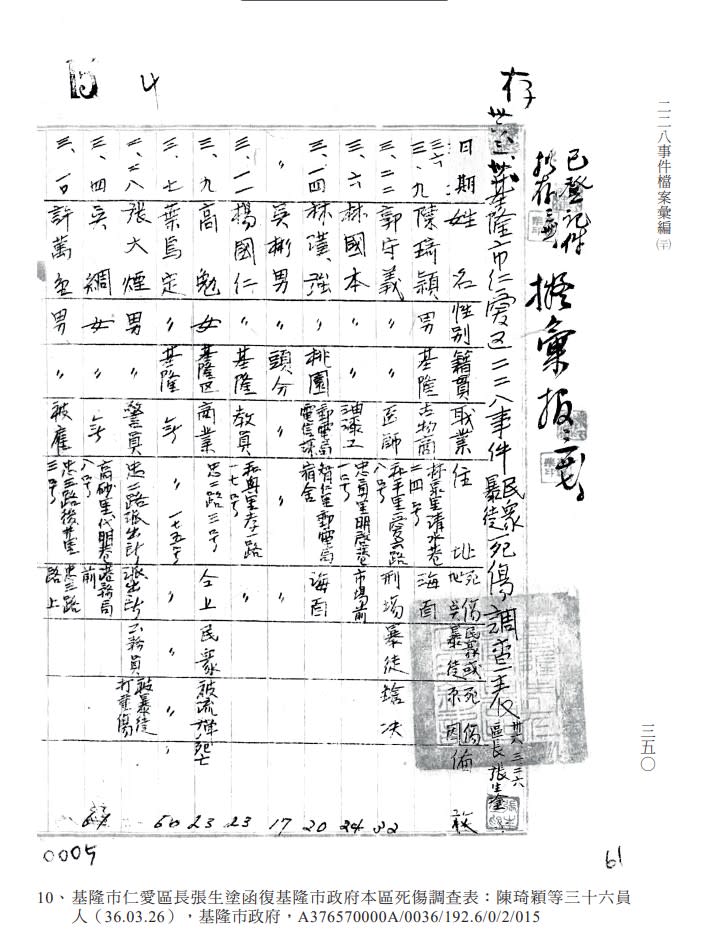 二二八事件檔案彙編
三五〇
已登記件
擬存
擬彙報
存
基隆市仁愛区二二八事件民眾暴徒死傷調查表 區長 張生塗
日期 姓名 性別 籍貫 職業 住址 死傷地 民眾或暴徒 死傷原因 備攷
三六、三、九 陳琦穎 男 基隆 古物商 清水巷二四号 海面
三、二二 郭守義 〃 〃 医師 和平里愛六路八号 刑場 暴徒 鎗决 32
三、六 林國本 〃 〃 油漆工 市場前 24
三、一四 林漢強 〃 桃園 郵電局電信課 智仁里郵電局宿舍 海面 20
〃 吳彬男 〃 頭分 〃 〃 〃 17
三、一一 楊國仁 〃 基隆 教員 和興里孝一路一七号 〃 23
三、九 高勉 女 基隆区 商業 忠二路三号 仝上 民眾 被流弹死亡 23
三、七 葉為定 〃 基隆 無 〃 一七五号 〃 〃 〃 50
二、二八 張大煙 男 〃 警員 忠二路派出所 派出所 公務員 被暴徒打重傷
三、四 吳綢 女 〃 無 高砂里代明巷八号 港務局前
三、一〇 許萬 男 〃 被雇 忠三路後井里三号 忠三路路上
4
15
0005
61
10、基隆市仁愛區長張生塗函復基隆市政府本區死傷調查表：陳琦穎等三十六員
人（36.03.26），基隆市政府，A376570000A/0036/192.6/0/2/015